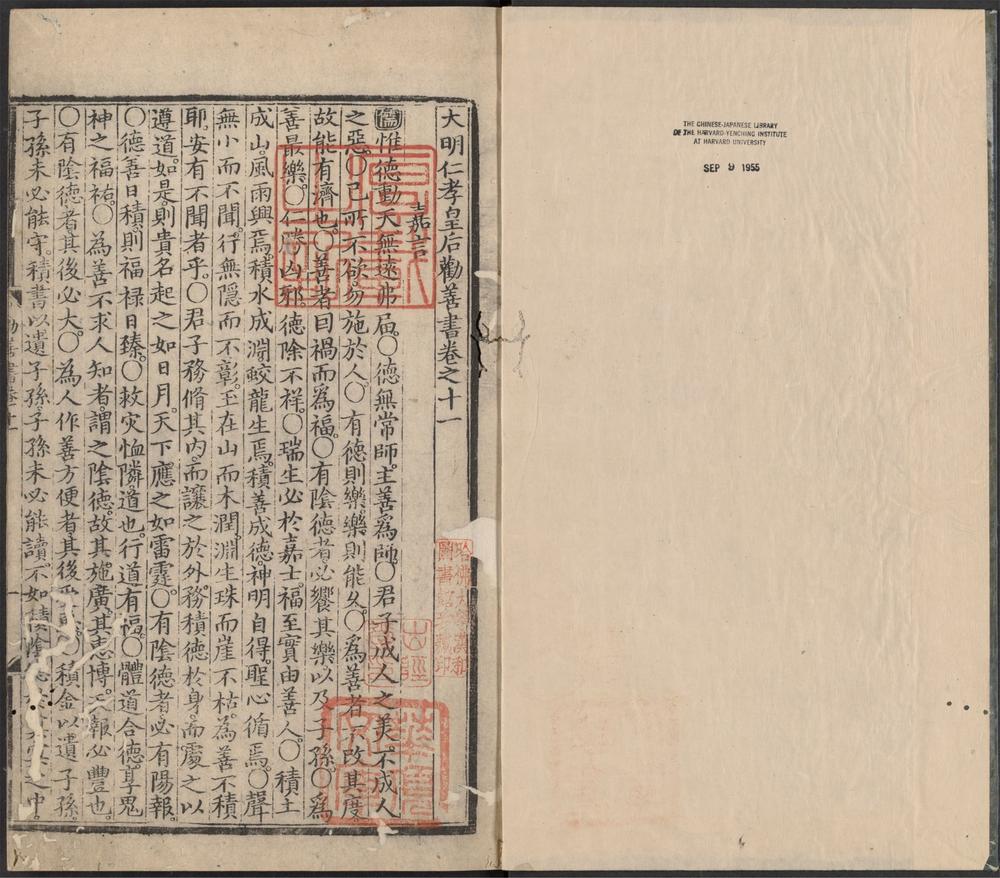 THE CHINESE-JAPANESE LIBRARY
OF THE HARVARD-YENCHING INSTITUTE
AT HARVARD UNIVERSITY
SEP 9 1955
大明仁孝皇后勸善書卷之十一
嘉言
儒惟德動天無遠弗届○德無常師主善爲師○君子成人之美不成人
之惡○己所不欲勿施於人○有德則樂樂則能久○爲善者不改其度
故能有濟也○善者因禍而爲福○有陰德者必饗其樂以及子孫○爲
善最樂○仁勝凶邪德除不祥○瑞生必於嘉士福至實由善人○積土
成山風雨興焉積水成淵蛟龍生焉積善成德神明自得聖心循焉○聲
無小而不聞行無隱而不彰玉在山而木潤淵生珠而崖不枯為善不積
耶安有不聞者乎○君子務脩其内而讓之於外務積德於身而處之以
遵道如是則貴名起之如日月天下應之如雷霆○有陰德者必有陽報
○德善日積則福禄日臻○救灾恤隣道也行道有福○體道合德享鬼
神之福祐○為善不求人知者謂之陰德故其施廣其志博天報必豐也
○有陰德者其後必大○為人作善方便者其後○積金以遺子孫
子孫未必能守積書以遺子孫子孫未必能讀不如積陰之中
勸善書卷十一